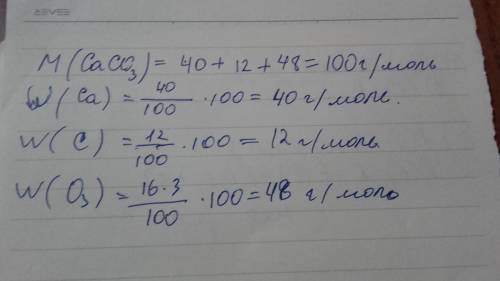 M(CaCO₃) = 40 + 12 + 48 = 100 г/моль
W(Ca) = 40/100 · 100 = 40 г/моль.
W(C) = 12/100 · 100 = 12 г/моль
W(O₃) = 16·3/100 · 100 = 48 г/моль